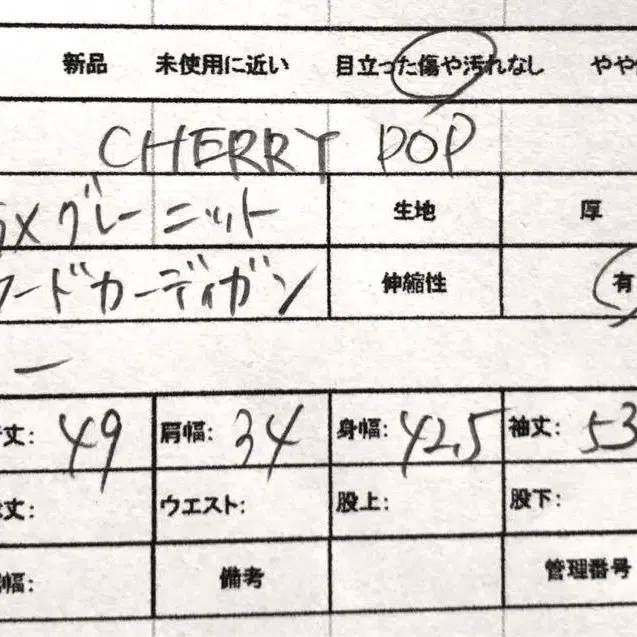 新品 未使用に近い 目立った傷や汚れなし やや
CHERRY POP
×グレーニット 生地 厚
フードカーディガン 伸縮性 有
ー
丈: 49 肩幅: 34 身幅: 42.5 袖丈: 53
丈: ウエスト: 股上: 股下:
幅: 備考 管理番号